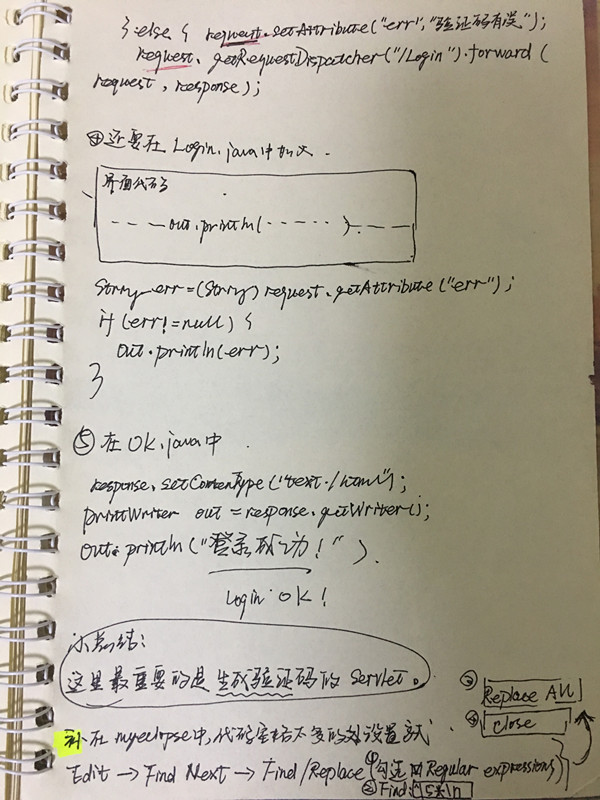 } else { request.setAttribute("err","验证码有误");
request.getRequestDispatcher("/Login").forward(
request, response);
④还要在 Login.java中加入.
界面代码
- - - - out.println(- - - - - -) - - - -
String err=(String) request.getAttribute("err");
if(err!=null) {
out.println(err);
}
⑤在 OK.java中.
response.setContentType("text/html");
printWriter out = response.getWriter();
out.println("登录成功!").
Login OK!
小总结:
这里最重要的是生成验证码的 Servlet。
③ Replace All
④ close
补 在myeclipse中,代码空格
Edit → Find Next → Find/Replace (①勾选 Regular expressions)
② Find: ^\s*\n